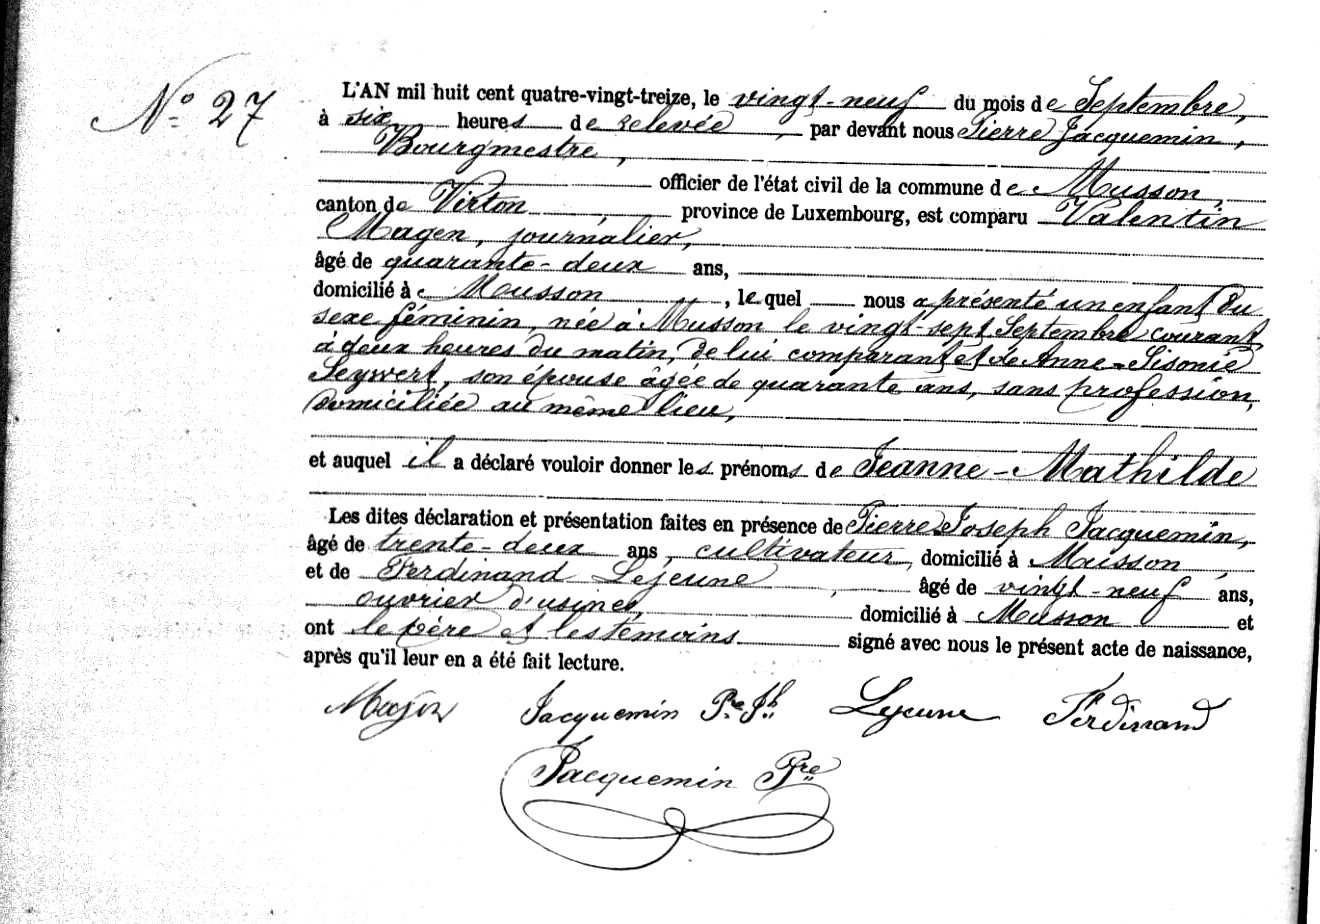 N° 27
L'AN mil huit cent quatre-vingt-treize, le vingt-neuf du mois de Septembre,
à six heures de relevée, par devant nous Pierre Jacquemin,
Bourgmestre,
officier de l'état civil de la commune de Musson,
canton de Virton, province de Luxembourg, est comparu Valentin
Magen, journalier,
âgé de quarante-deux ans,
domicilié à Musson, le quel nous a présenté un enfant du
sexe féminin, née à Musson le vingt-sept Septembre courant
à deux heures du matin, de lui comparant et de Anne-Sisonie
Seywert, son épouse âgée de quarante ans, sans profession,
domiciliée au même lieu,
et auquel il a déclaré vouloir donner les prénoms de Jeanne-Mathilde
Les dites déclaration et présentation faites en présence de Pierre Joseph Jacquemin,
âgé de trente-deux ans, cultivateur, domicilié à Musson,
et de Ferdinand Lejeune, âgé de vingt-neuf ans,
ouvrier d'usines, domicilié à Musson et
ont le père et les témoins signé avec nous le présent acte de naissance,
après qu'il leur en a été fait lecture.
Jacquemin Pre Jh Lejeune Ferdinand
Jacquemin Pre